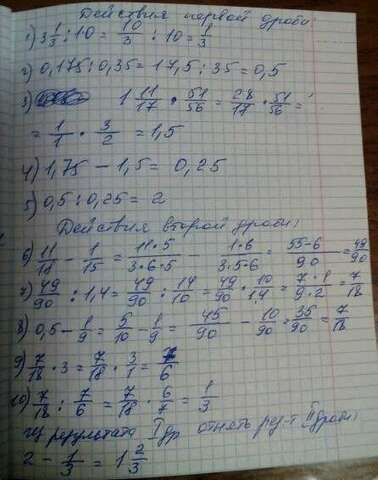 Действия первой дроби:
1) 3 1/3 : 10 = 10/3 : 10 = 1/3
2) 0,175 : 0,35 = 17,5 : 35 = 0,5
3) 1 11/17 · 51/56 = 28/17 · 51/56 =
= 1/1 · 3/2 = 1,5
4) 1,75 - 1,5 = 0,25
5) 0,5 : 0,25 = 2
Действия второй дроби:
6) 11/18 - 1/15 = 11·5/3·6·5 - 1·6/3·5·6 = 55-6/90 = 49/90
7) 49/90 : 1,4 = 49/90 : 14/10 = 49/90 · 10/14 = 7·1/9·2 = 7/18
8) 0,5 - 1/9 = 5/10 - 1/9 = 45/90 - 10/90 = 35/90 = 7/18
9) 7/18 · 3 = 7/18 · 3/1 = 7/6
10) 7/18 : 7/6 = 7/18 · 6/7 = 1/3
результата I др отнять рез-т II дроби
2 - 1/3 = 1 2/3